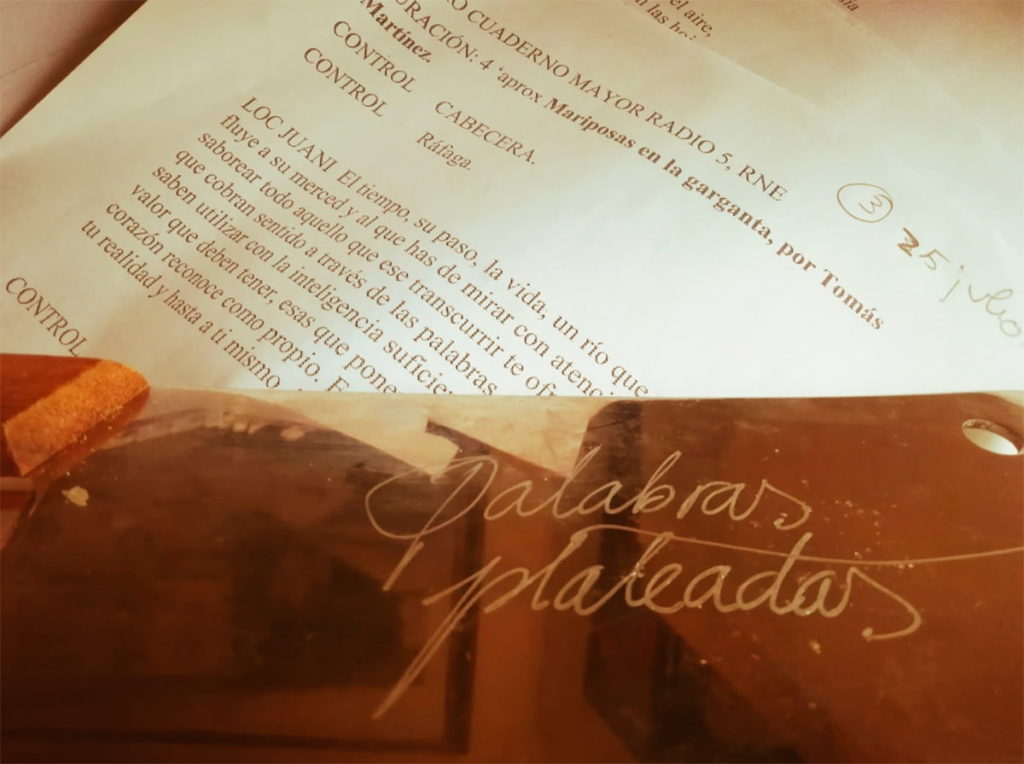 el aire,
CUADERNO MAYOR RADIO 5, RNE
4 'aprox Mariposas en la garganta, por Tomás
Martínez.
CONTROL CABECERA.
CONTROL Ráfaga.
LOC JUANI El tiempo, su paso, la vida, un río que
fluye a su merced y al que has de mirar con
saborear todo aquello que ese transcurrir te
que cobran sentido a través de las palabras
saben utilizar con la inteligencia
valor que deben tener, esas que
corazón reconoce como propio.
tu realidad y hasta a ti mismo
CONTROL
3
25 julio
Palabras
plateadas